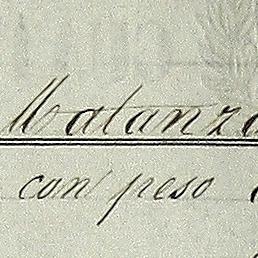 Matanza
con peso